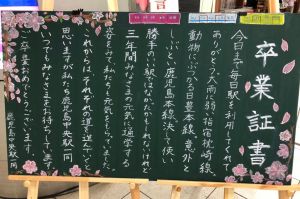 卒業証書
今日まで毎日駅を利用してくれて
ありがとう大雨に弱い指宿枕崎線
動物にぶつかる日豊本線意外と
しぶとい鹿児島本線決して使い
勝手のいい駅ではなかったかもしれないけれど
三年間みなさまの元気に通学する
姿を見て私たちも元気をもらいました
これからは、それぞれの道を進んでいくと
思いますが私たち鹿児島中央駅一同
いつでもみなさまをお待ちしてます。
ご卒業おめでとうございます。
鹿児島中央駅一同